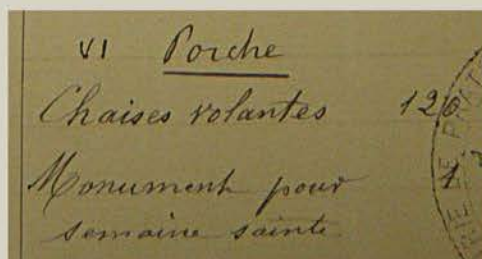 VI Porche
Chaises volantes 120
Monument pour 1
semaine sainte